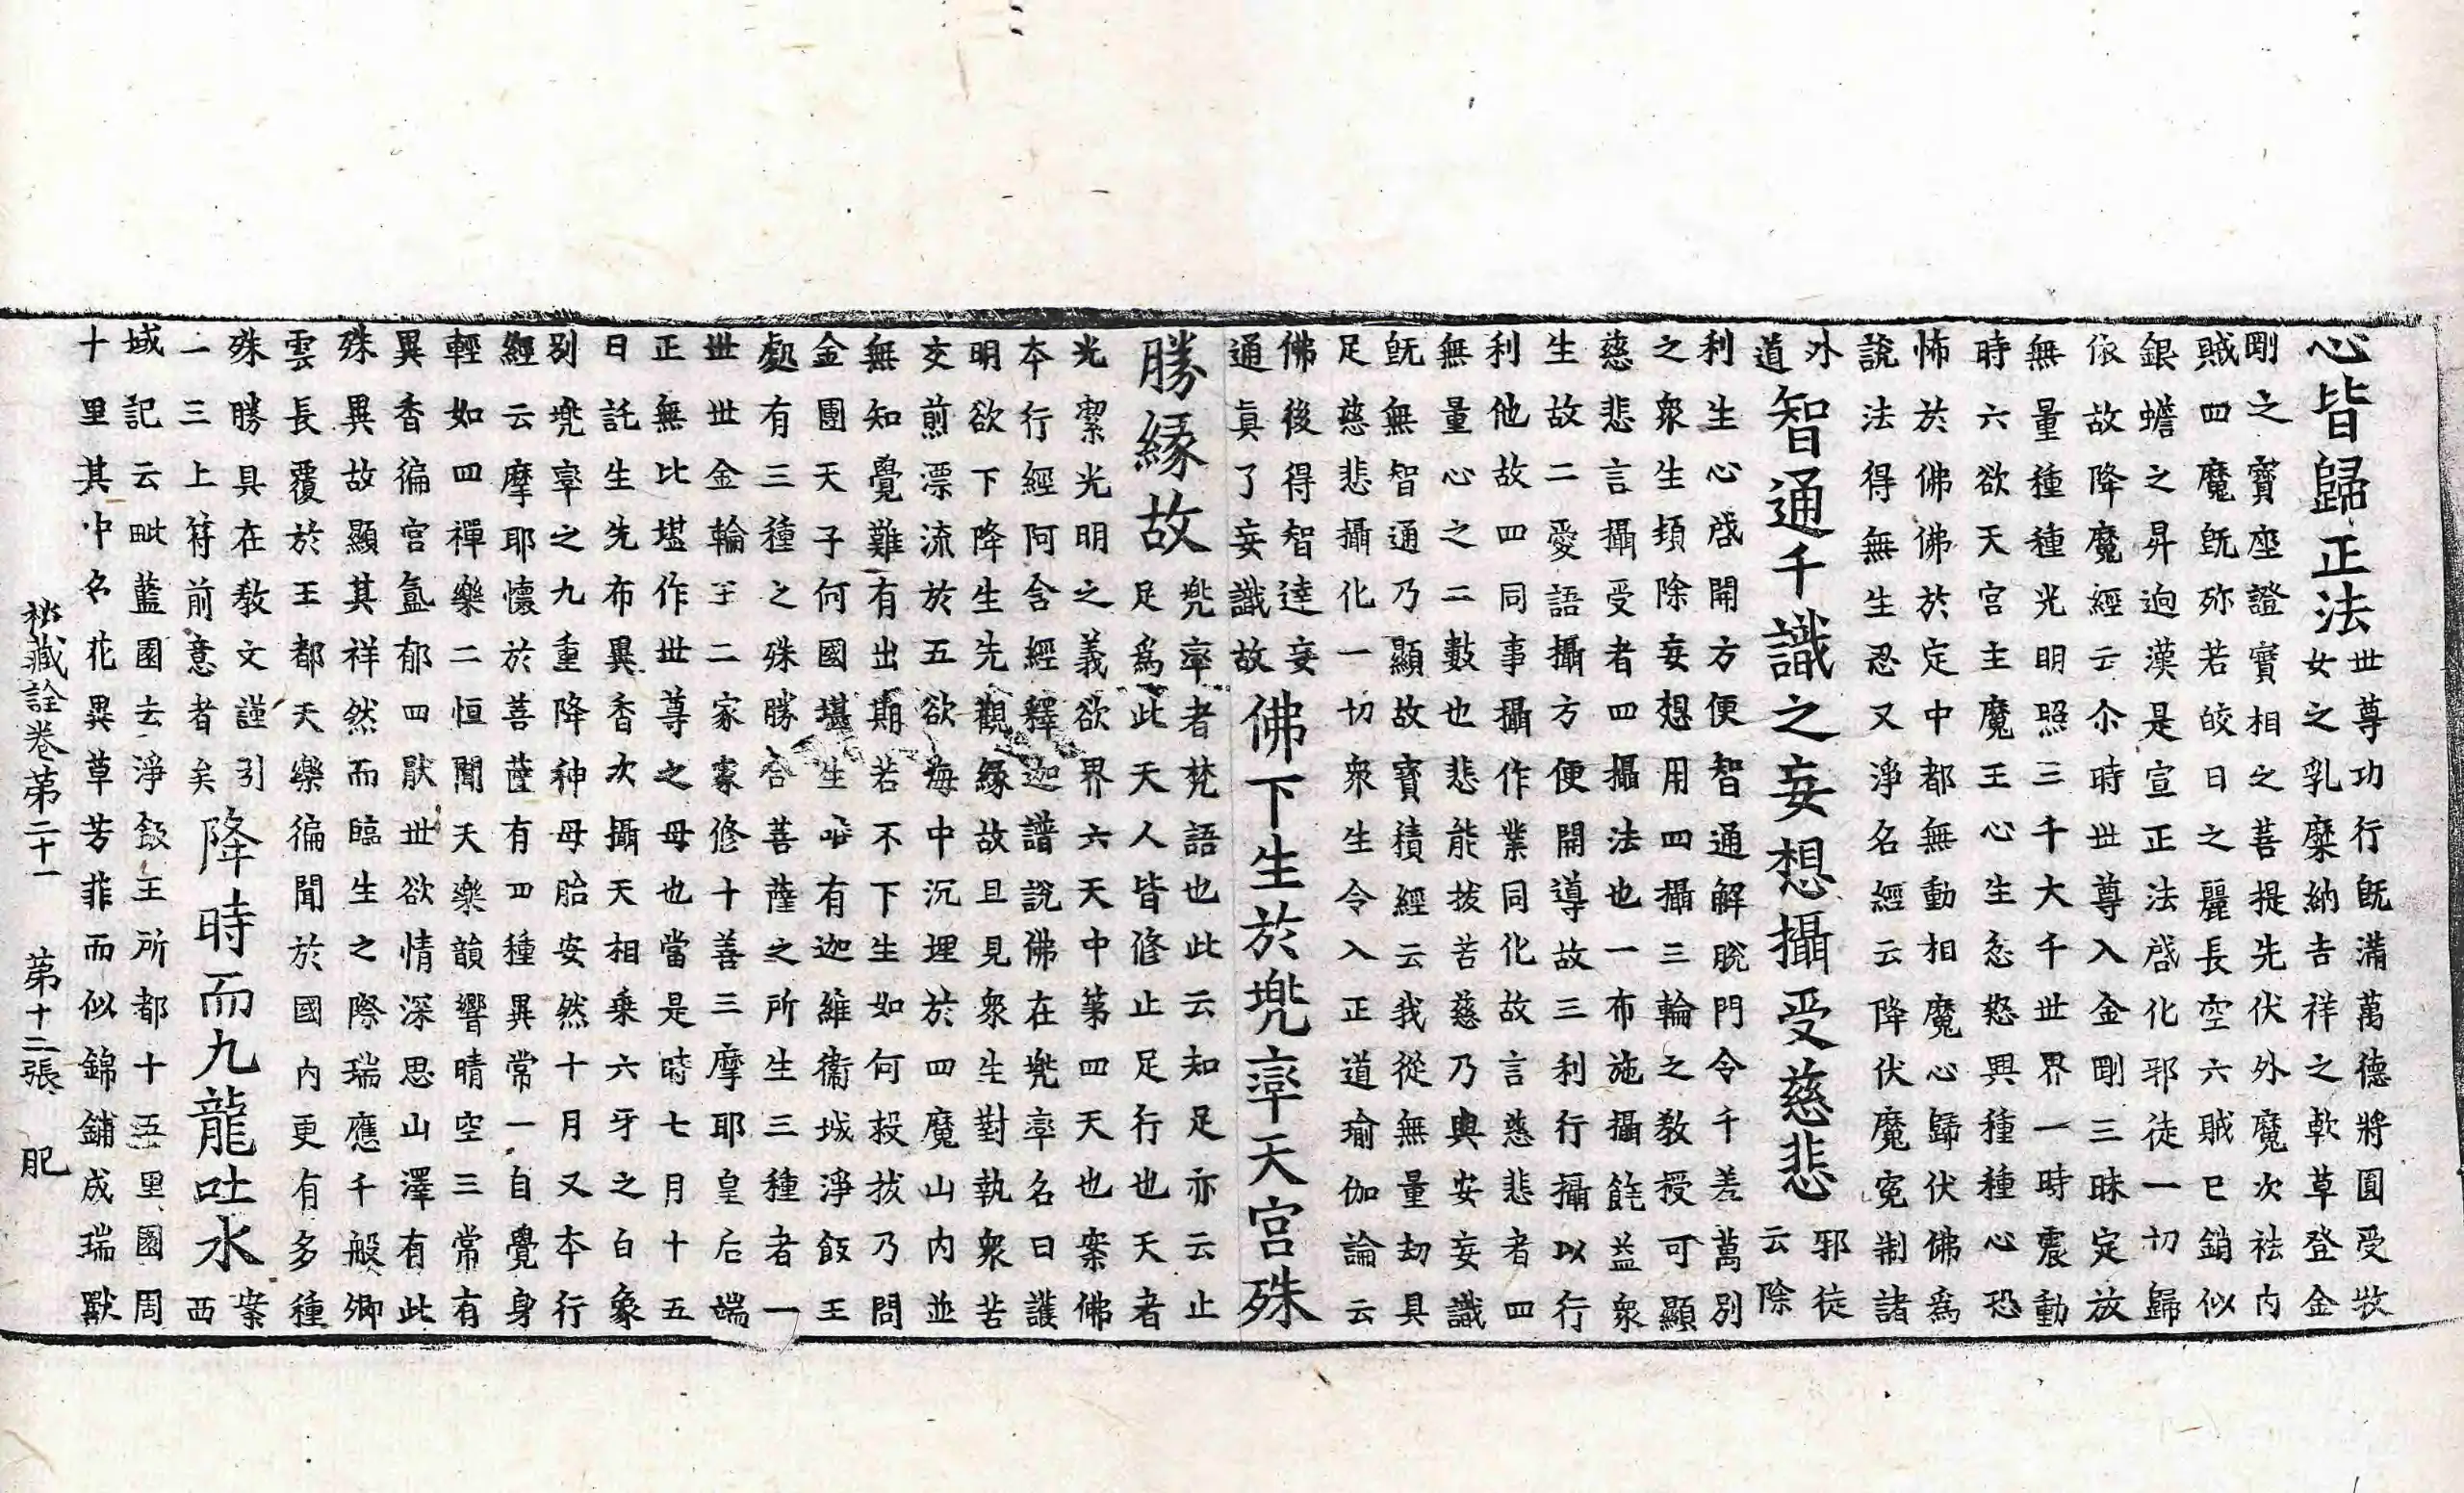 心皆歸正法世尊功行既滿萬德將圓受牧
女之乳糜納吉祥之軟草登金
剛之寶座證寶相之菩提先伏外魔次祛内
賊四魔旣殄若皎日之麗長空六賊已銷似
銀蟾之昇逈漢是宣正法啓化邪徒一切歸
依故降魔經云尒時世尊入金剛三昧定放
無量種種光明照三千大千世界一時震動
時六欲天宮主魔王心生忿怒興種種心恐
怖於佛佛於定中都無動相魔心歸伏佛爲
說法得無生忍又淨名經云降伏魔寃制諸
外
道智通千識之妄想攝受慈悲邪徒
云除
利生心啓開方便智通解脫門令千差萬別
之衆生頓除妄想用四攝三輪之教授可顯
慈悲言攝受者四攝法也一布施攝饒益衆
生故二愛語攝方便開導故三利行攝以行
利他故四同事攝作業同化故言慈悲者四
無量心之二數也悲能拔苦慈乃與安妄識
旣無智通乃顯故寶積經云我從無量劫具
足慈悲攝化一切衆生令入正道瑜伽論云
佛後得智達妄
通眞了妄識故佛下生於兠率天宮殊
勝緣故兠率者梵語也此云知足亦云止
足爲此天人皆修止足行也天者
光絜光明之義欲界六天中第四天也案佛
本行經阿含經釋迦譜說佛在兠率名曰護
明欲下降生先觀緣故且見衆生對執衆苦
交煎漂流於五欲海中沉埋於四魔山内並
無知覺難有出期若不下生如何救拔乃問
金團天子何國堪生唯有迦維衛城淨飯王
處有三種之殊勝合菩薩之所生三種者一
世世金輪王二家家修十善三摩耶皇后端
正無比堪作世尊之母也當是時七月十五
日託生先布異香次攝天相乗六牙之白象
別兠率之九重降神母胎安然十月又本行
經云摩耶懷於菩薩有四種異常一自覺身
輕如四禪樂二恒聞天樂韻響晴空三常有
異香徧宮氳郁四猒世欲情深思山澤有此
殊異故顯其祥然而臨生之際瑞應千般卿
雲長覆於王都天樂徧聞於國内更有多種
殊勝具在教文謹引
二三上符前意者矣降時而九龍吐水案
西
域記云毗藍園去淨飯王所都十五里園周
十里其中名花異草芳菲而似錦鋪成瑞獸
秘藏詮卷第二十一 第十二張 肥